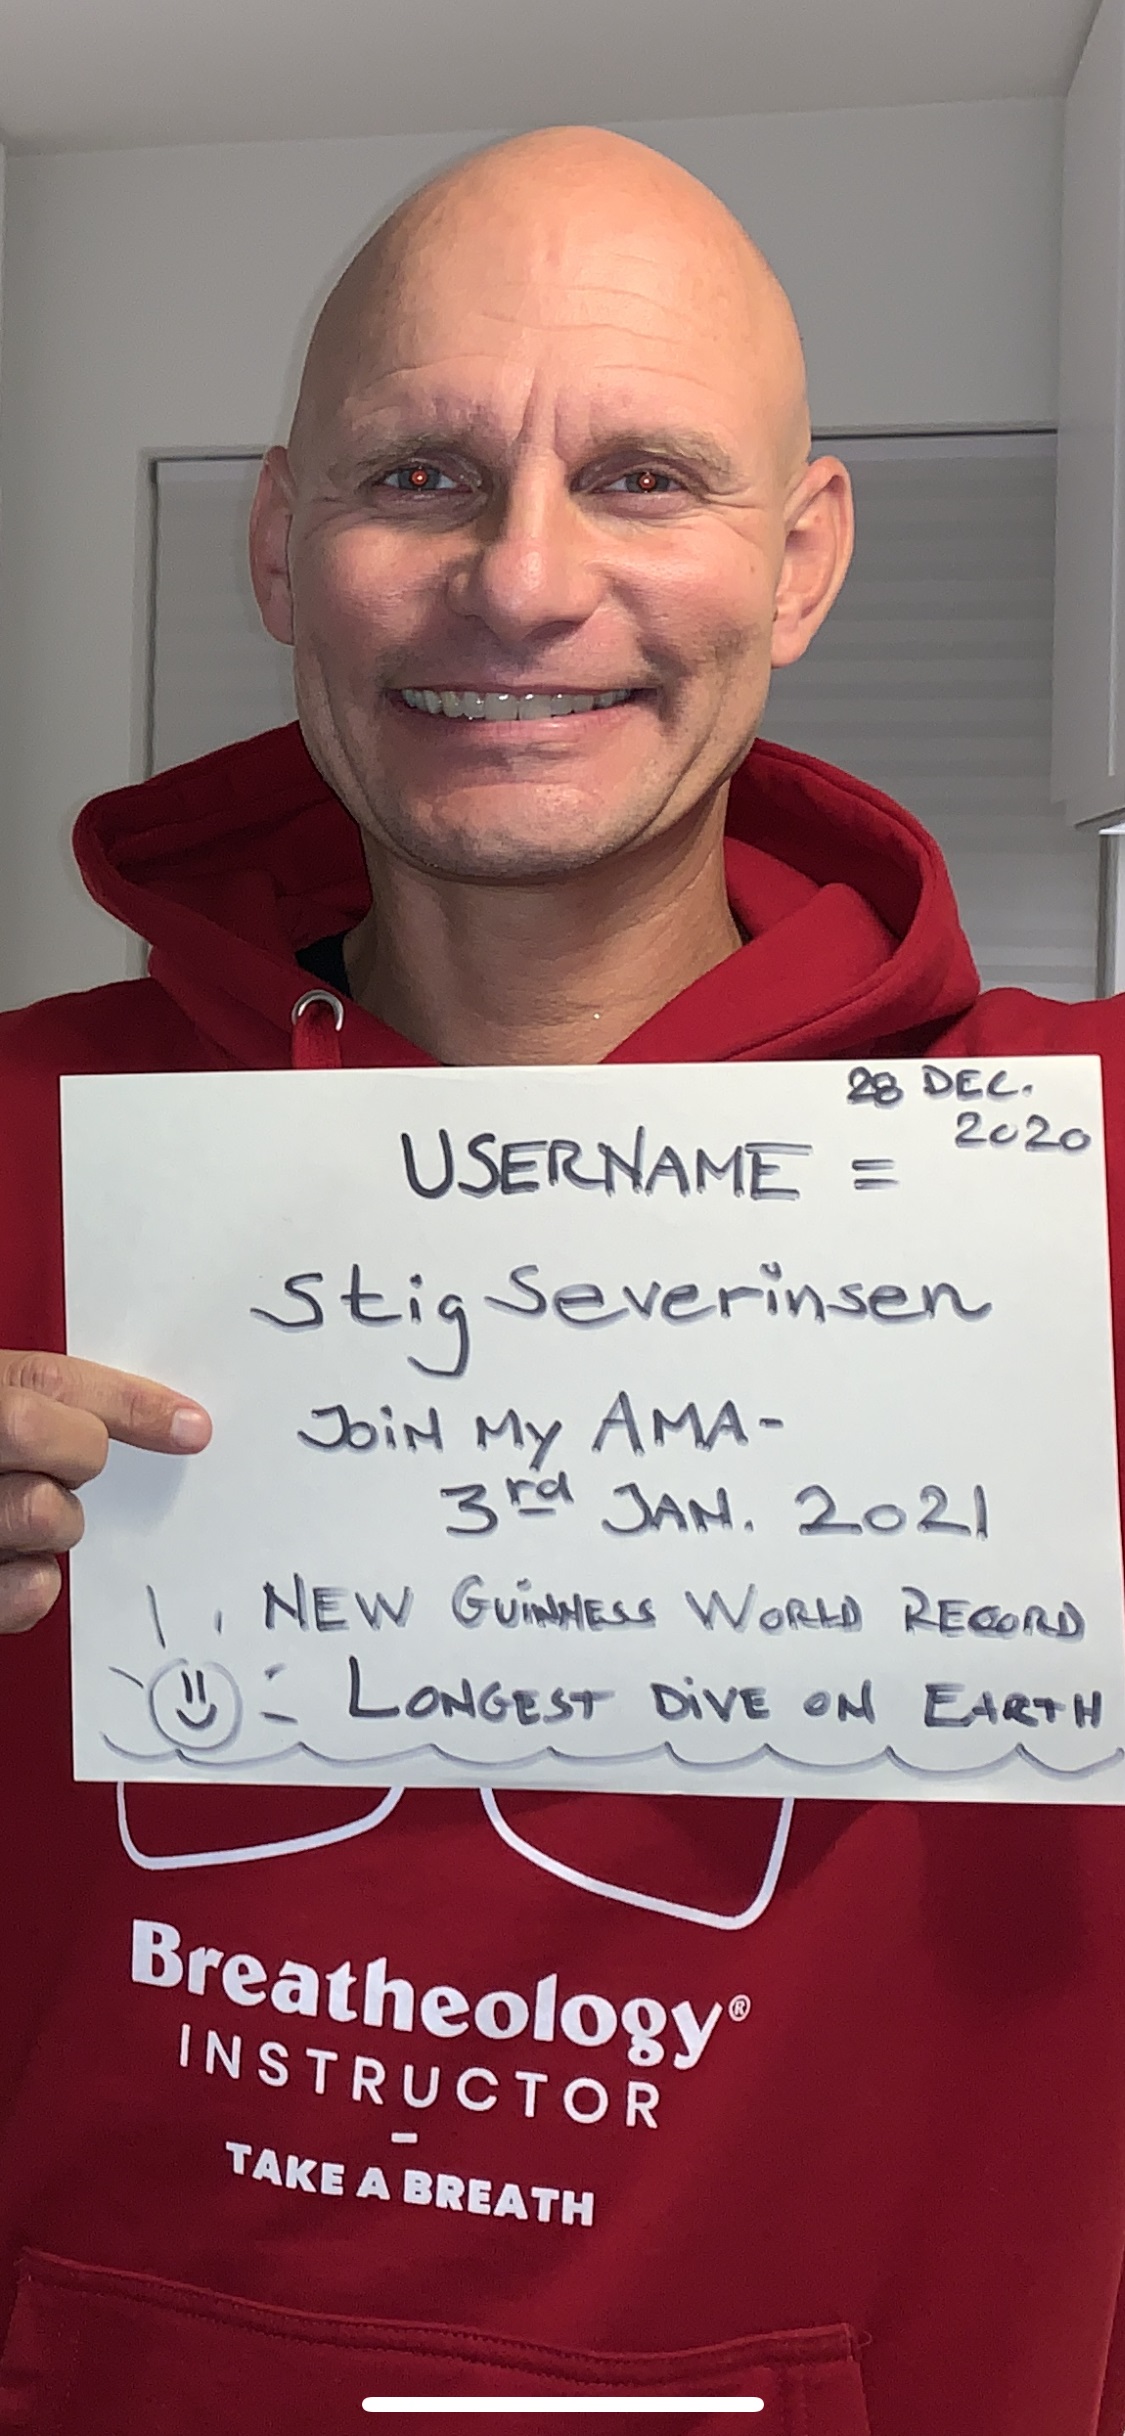 28 DEC.
2020
USERNAME =
Stig Severinsen
JOIN MY AMA-
3rd JAN. 2021
NEW GUINNESS WORLD RECORD
LONGEST DIVE ON EARTH
Breatheology®
INSTRUCTOR
-
TAKE A BREATH